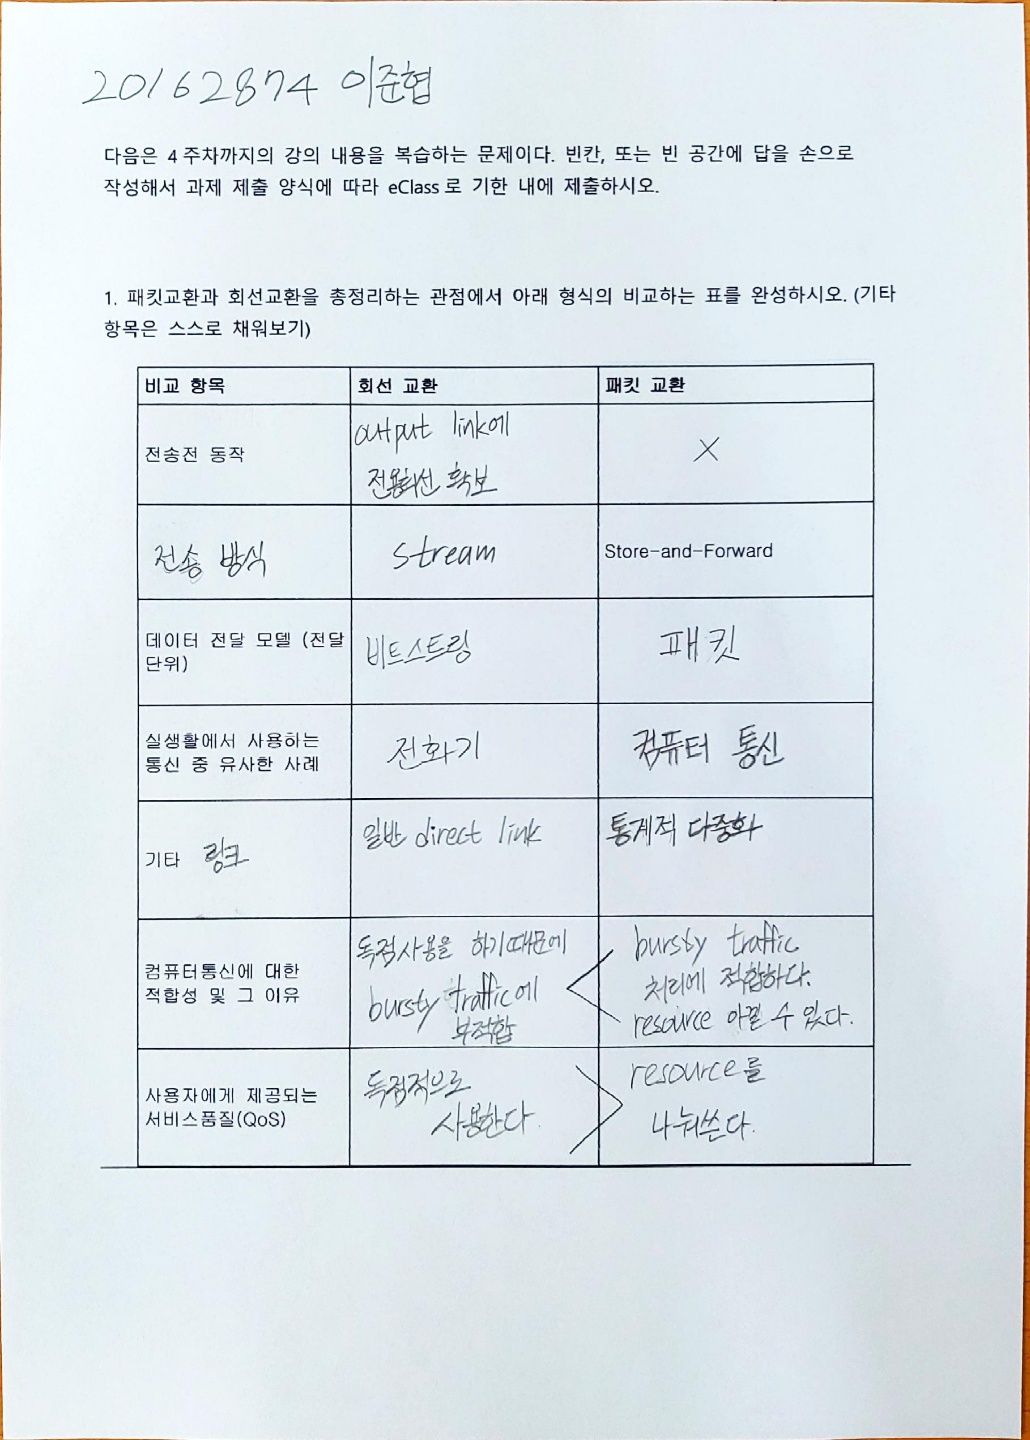 20162874 이준협
다음은 4주차까지의 강의 내용을 복습하는 문제이다. 빈칸, 또는 빈 공간에 답을 손으로
작성해서 과제 제출 양식에 따라 eClass로 기한 내에 제출하시오.
1. 패킷교환과 회선교환을 총정리하는 관점에서 아래 형식의 비교하는 표를 완성하시오. (기타
항목은 스스로 채워보기)
비교 항목
회선 교환
패킷 교환
전송전 동작
output link에
전용회선 확보
X
전송 방식
stream
Store-and-Forward
데이터 전달 모델 (전달
단위)
비트스트링
패킷
실생활에서 사용하는
통신 중 유사한 사례
전화기
컴퓨터 통신
기타 링크
일반 direct link
통계적 다중화
컴퓨터통신에 대한
적합성 및 그 이유
독점사용을 하기 때문에
bursty traffic에
부적합
<
bursty traffic
처리에 적합하다.
resource 아낄 수 있다.
사용자에게 제공되는
서비스품질(QoS)
독점적으로
사용한다.
>
resource를
나눠쓴다.